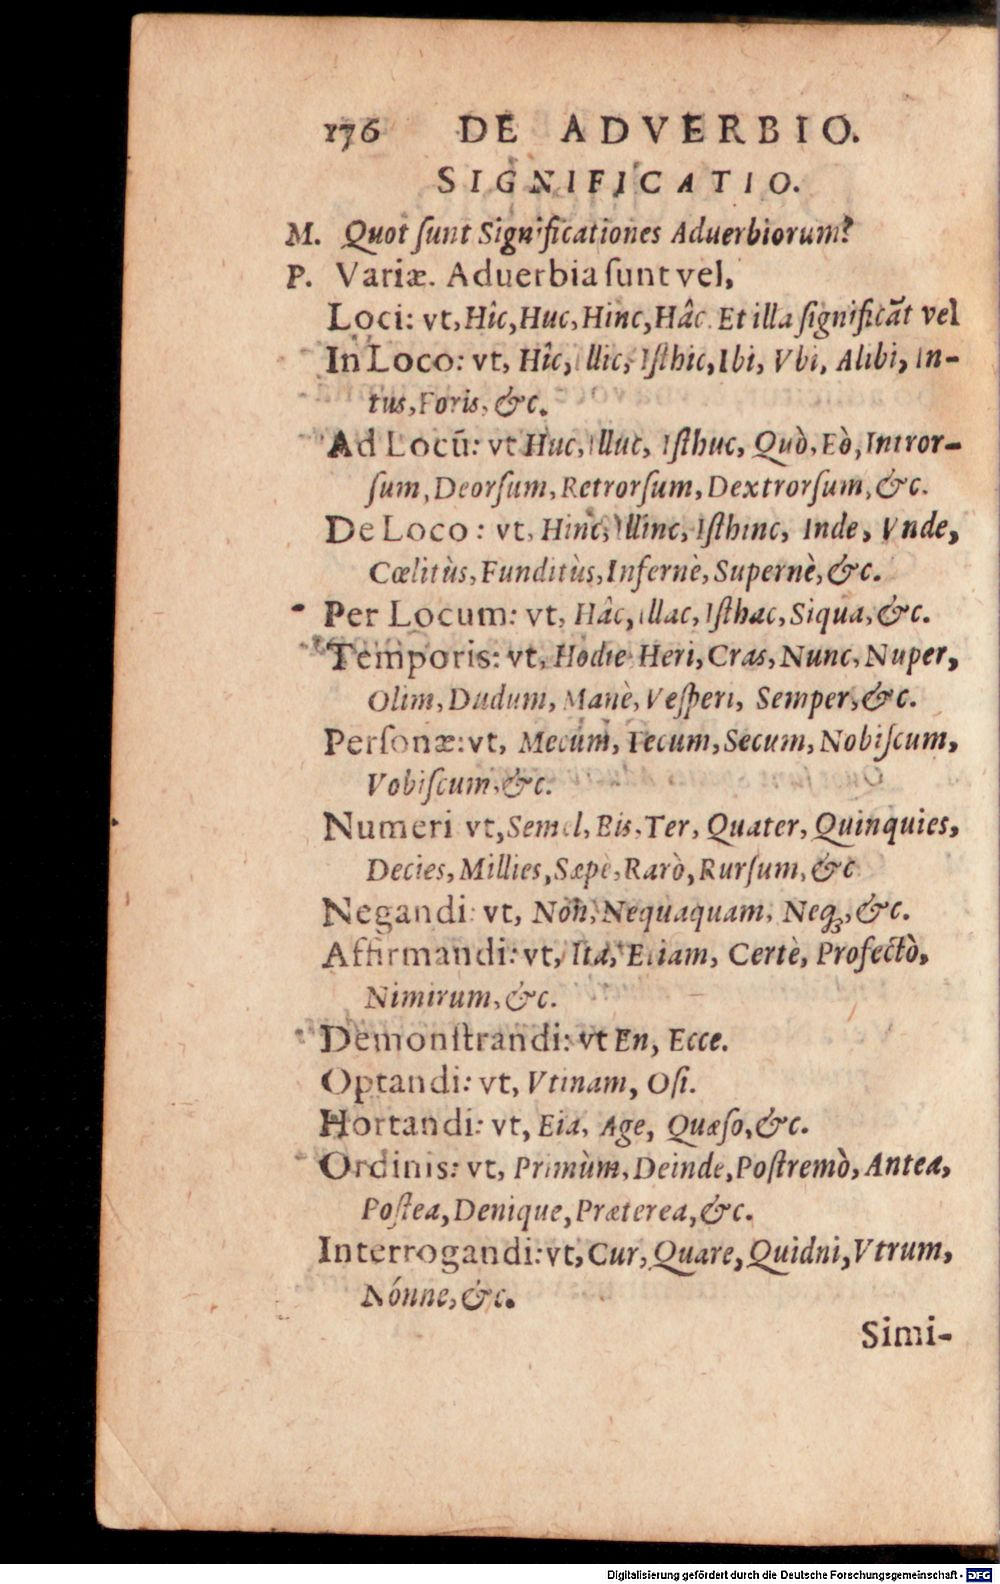 176 DE ADVERBIO.
SIGNIFICATIO.
M. Quot ſunt Significationes Aduerbiorum?
P. Variæ. Aduerbia ſunt vel,
Loci: vt, Hîc, Huc, Hinc, Hâc. Et illa ſignificãt vel
In Loco: vt, Hîc, Illic, Iſthic, Ibi, Vbi, Alibi, In-
tus, Foris, &c.
Ad Locũ: vt Huc, Illuc, Iſthuc, Quò, Eò, Intror-
ſum, Deorſum, Retrorſum, Dextrorſum, &c.
De Loco: vt, Hinc, Illinc, Iſthinc, Inde, Vnde,
Cœlitùs, Funditùs, Infernè, Supernè, &c.
Per Locum: vt, Hâc, Illac, Iſthac, Siqua, &c.
Temporis: vt, Hodie Heri, Cras, Nunc, Nuper,
Olim, Dudum, Manè, Veſperi, Semper, &c.
Perſonæ: vt, Mecùm, Tecum, Secum, Nobiſcum,
Vobiſcum, &c.
Numeri vt, Semel, Bis, Ter, Quater, Quinquies,
Decies, Millies, Sæpè, Rarò, Rurſum, &c
Negandi: vt, Non, Nequaquam, Neqꝫ, &c.
Affirmandi: vt, Ita, Etiam, Certè, Profectò,
Nimirum, &c.
Demonſtrandi: vt En, Ecce.
Optandi: vt, Vtinam, Oſi.
Hortandi: vt, Eia, Age, Quæſo, &c.
Ordinis: vt, Primùm, Deinde, Poſtremò, Antea,
Poſtea, Denique, Præterea, &c.
Interrogandi: vt, Cur, Quare, Quidni, Vtrum,
Nónne, &c.
Simi-
Digitalisierung gefördert durch die Deutsche Forschungsgemeinschaft - DFG